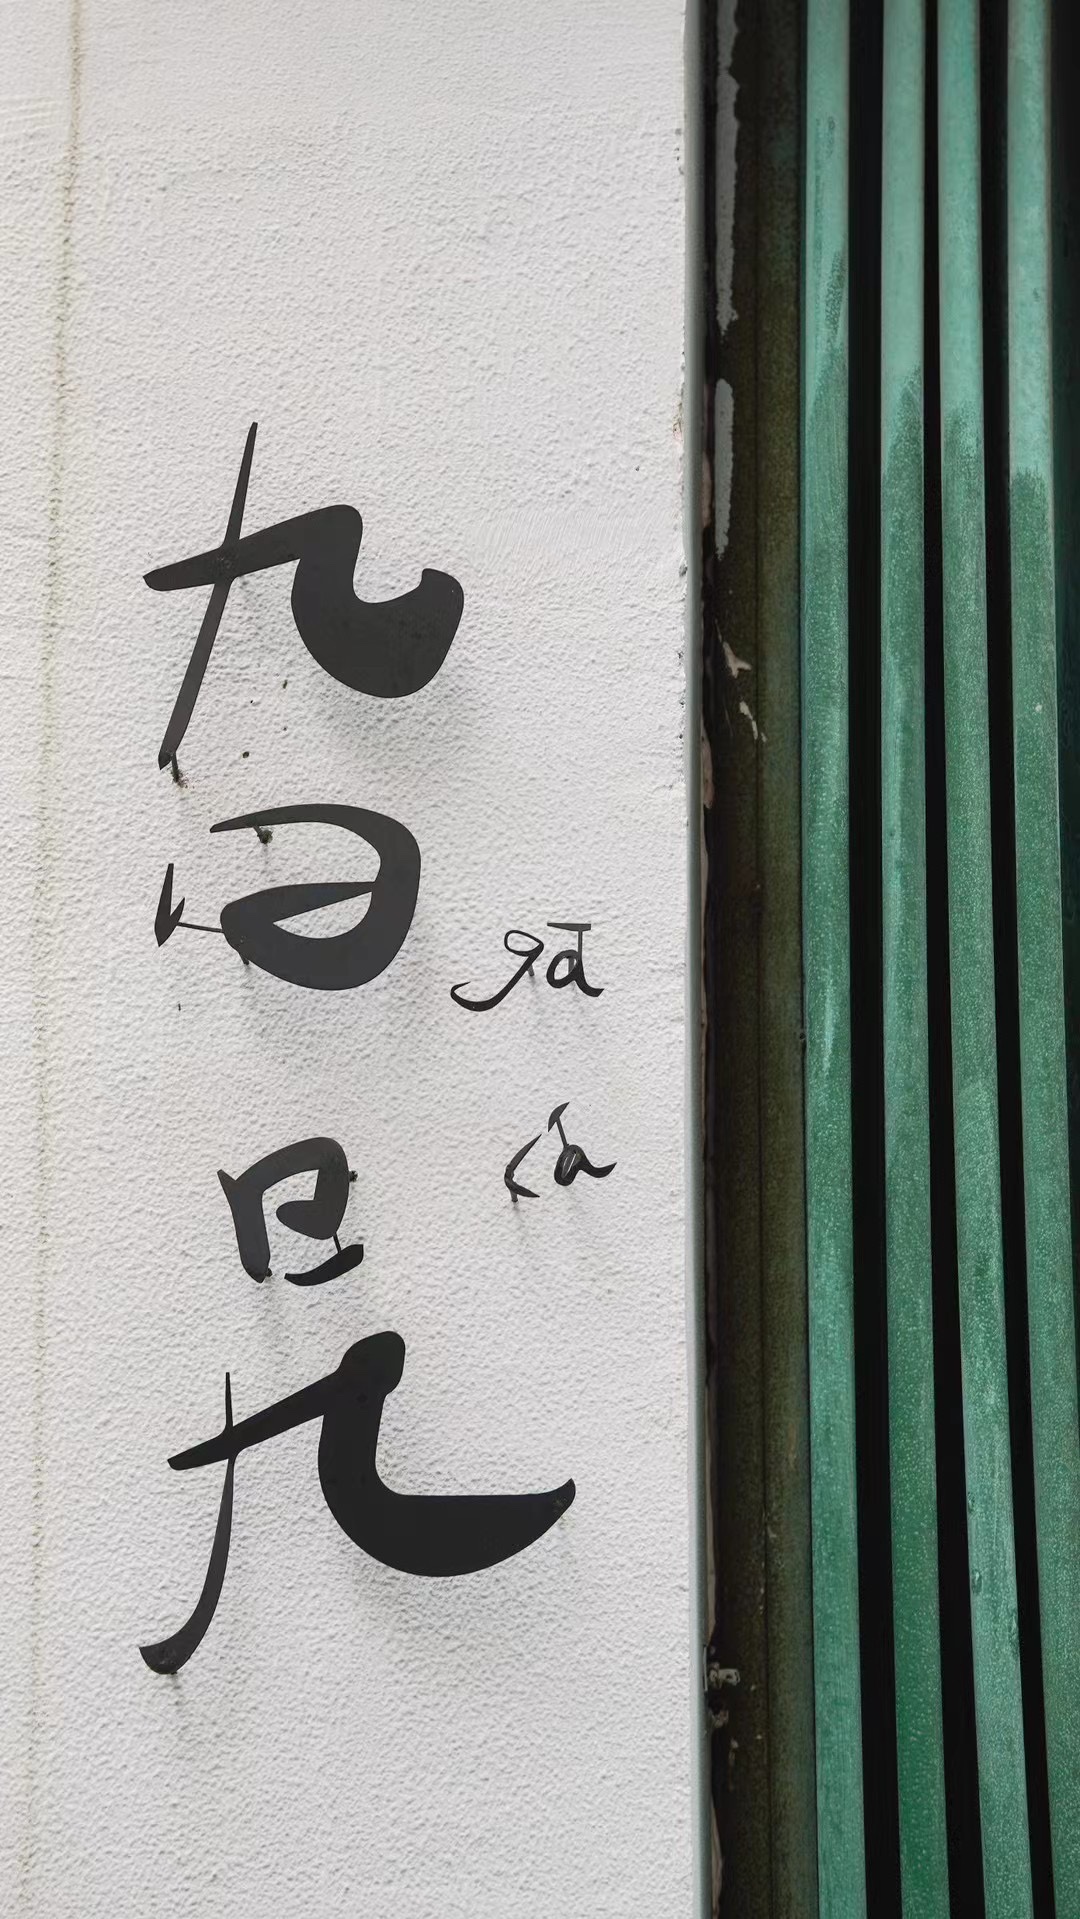 旮旯
gā
lá